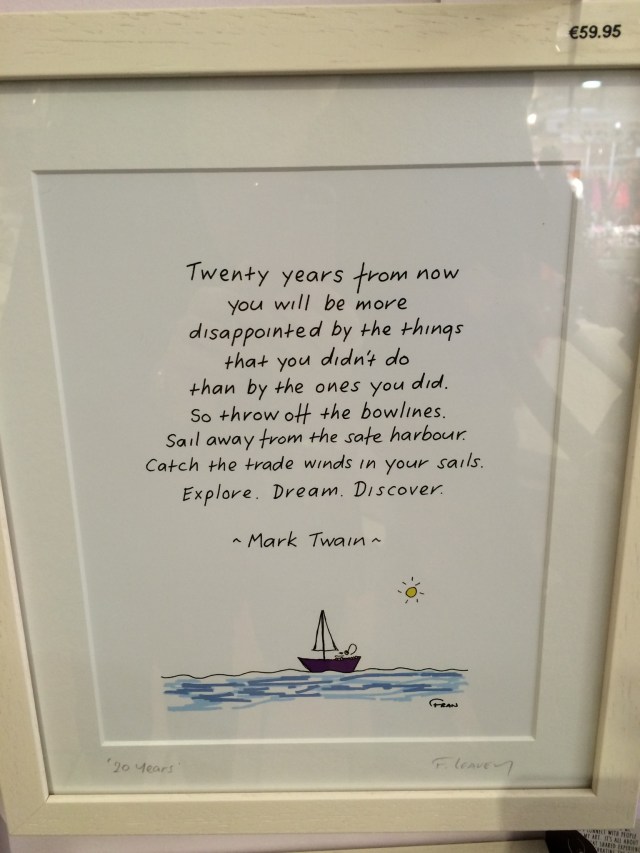 €59.95
Twenty years from now
you will be more
disappointed by the things
that you didn't do
than by the ones you did.
So throw off the bowlines.
Sail away from the safe harbour.
Catch the trade winds in your sails.
Explore. Dream. Discover.
~ Mark Twain ~
FRAN
'20 Years'
F. Leavey
CONNECT WITH PEOPLE
MY ART. IT'S ALL ABOUT